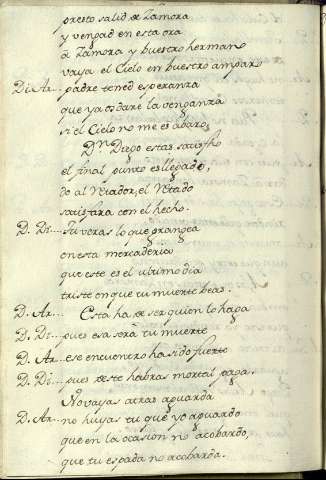 presto salid de Zamora
y vengad en esta ora
a Zamora y buestro hermano
vaya el Cielo en buestro amparo
Di. Ar... padre tened esperanza
que yo os dare la venganza
si el Cielo no me es abaro,
Dn. Diego estas satisfho
el final punto es llegado,
do al Retador, el Retado
satisfara con el hecho.
D. Di... tu veras lo que grangea
on esta mercaderia
que este es el ultimo dia
triste en que tu muerte beas.
D. Ar... Esta ha de ser quien lo haga
D. Di... pues esa será tu muerte
D. Ar... ese encuentro ha sido fuerte
D. Di... pues deste habras mortal paga.
No vayas atras aguarda
D. Ar... no huyas tu que yo aguardo
que en la ocasion no acobardo,
que tu espada no acobarda.